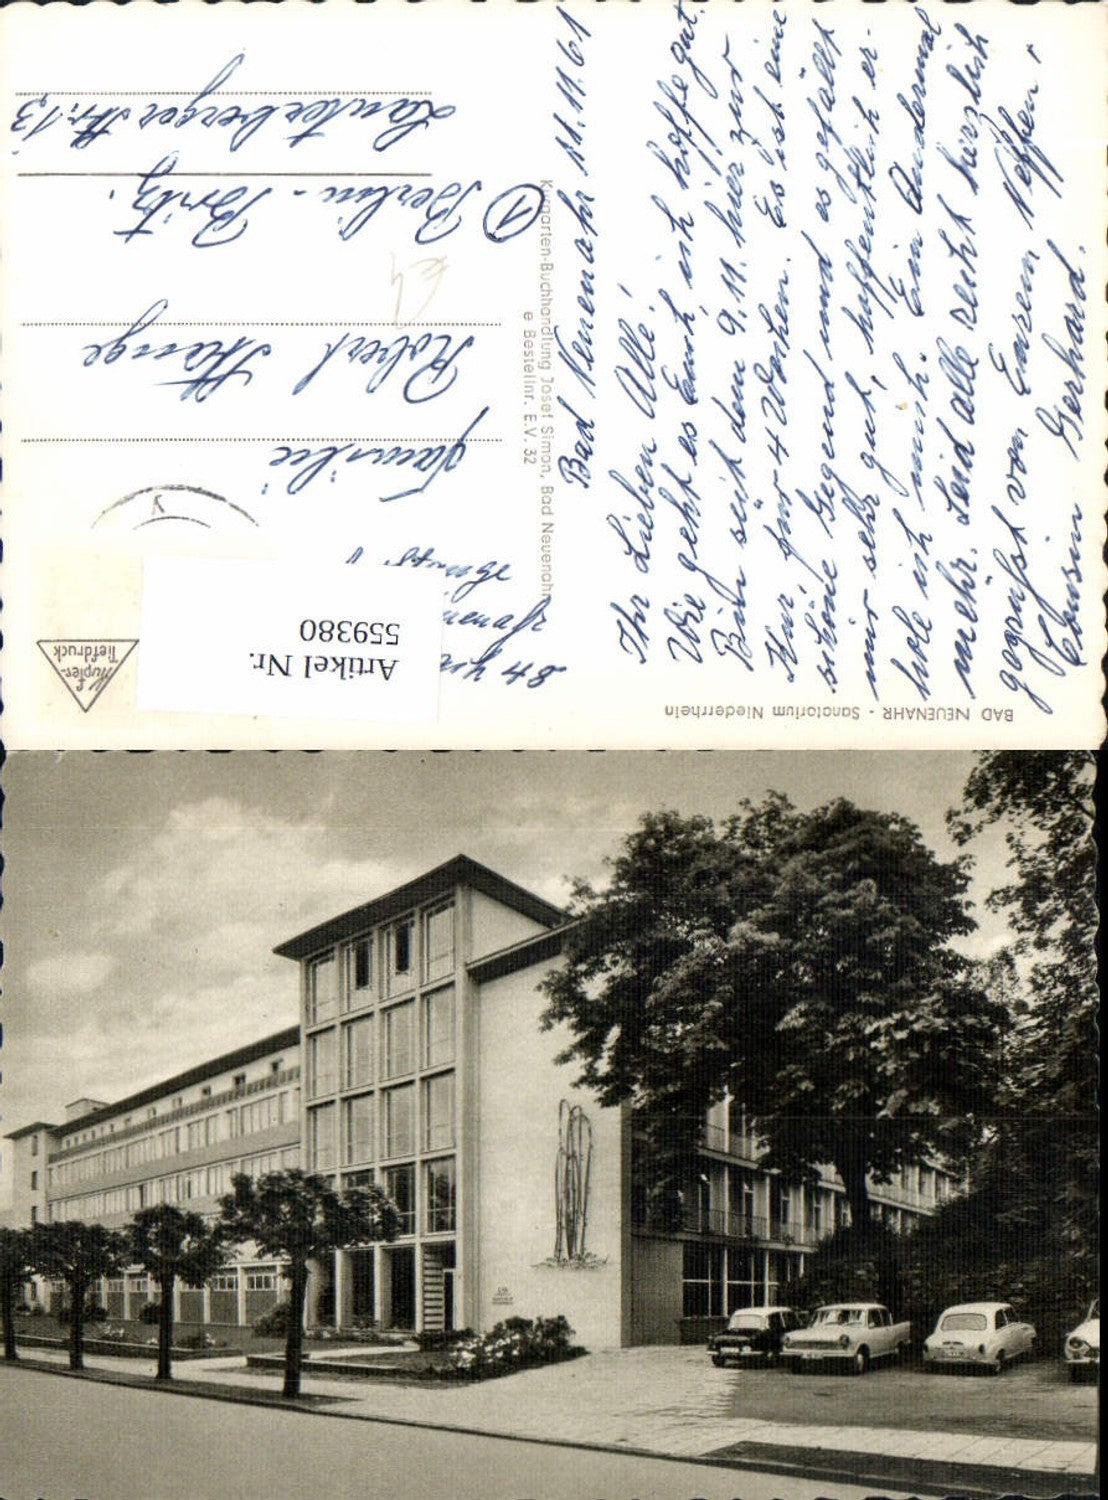 BAD NEUENAHR - Sanatorium Niederrhein
Bad Neuenahr 11.11.61
Ihr Lieben Alle!
Wie geht es Euch ich hoffe gut.
Bin seit dem 9.11. hier zur
Kur, für 4 Wochen. Es ist eine
schöne Gegend und es gefällt
mir sehr gut, hoffentlich er-
hole ich mich. Ein Andermal
mehr. Seid alle recht herzlich
gegrüßt von Eurem Neffen,
Cousin Gerhard.
Kurgarten-Buchhandlung Josef Simon, Bad Neuenahr
e Bestellnr. E.V. 32
Artikel Nr.
559380
Hupfer-
Tiefdruck
Familie
Robert Stange
① Berlin - Britz.
Lauterberger Str. 13